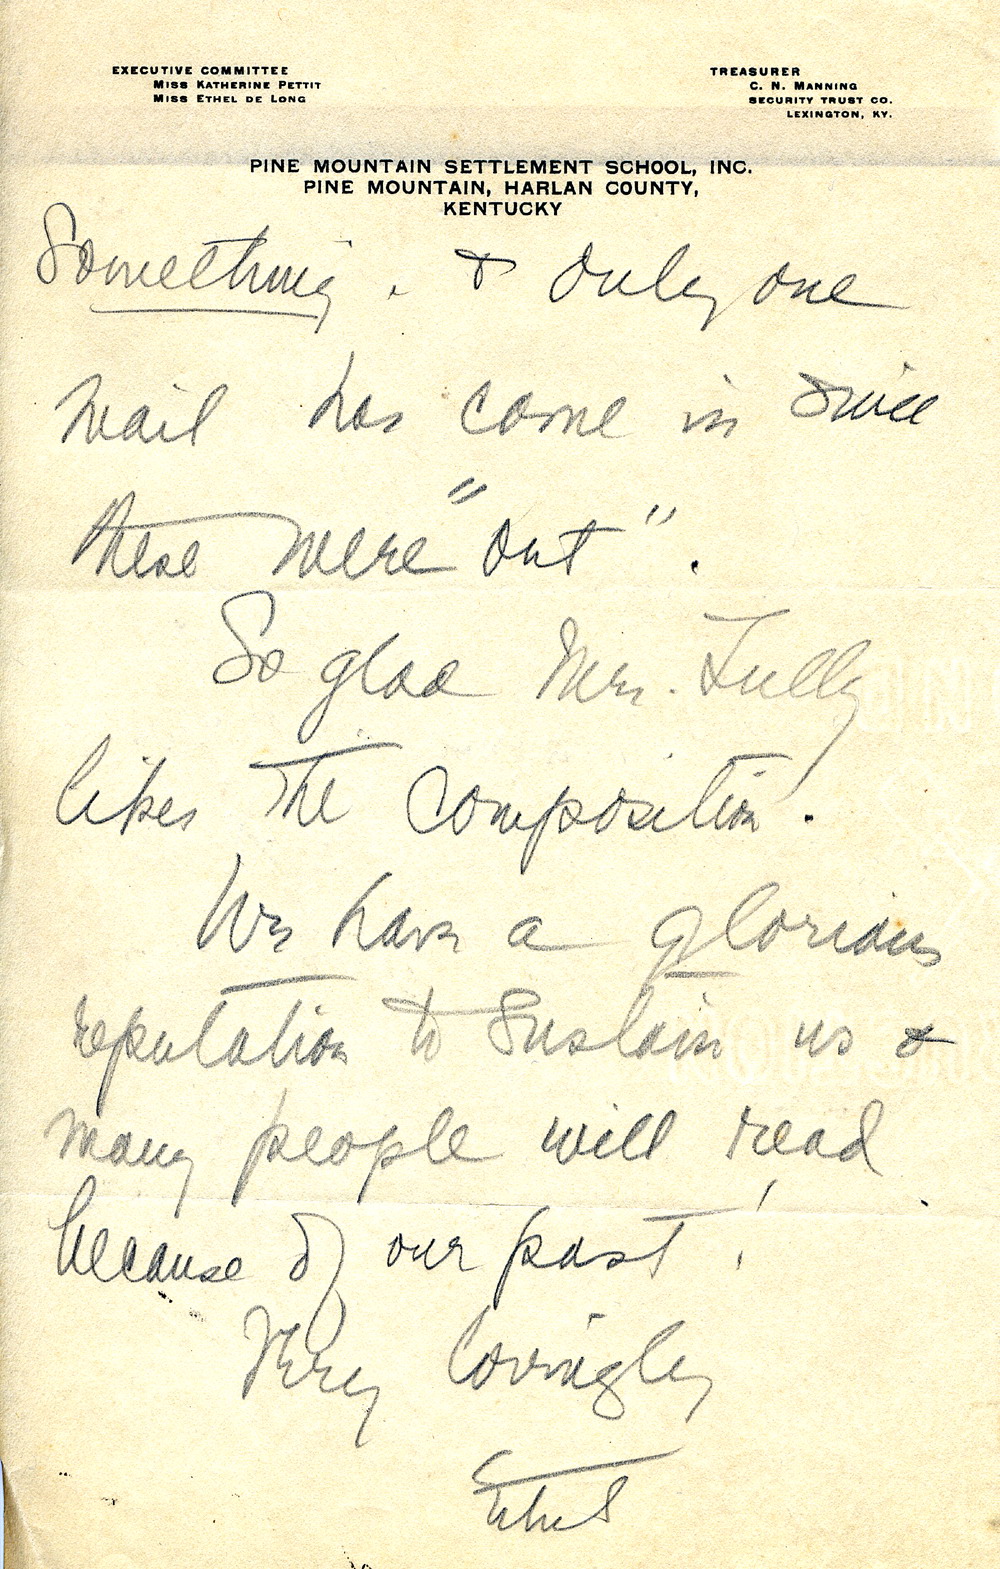 EXECUTIVE COMMITTEE
MISS KATHERINE PETTIT
MISS ETHEL DE LONG
TREASURER
C. N. MANNING
SECURITY TRUST CO.
LEXINGTON, KY.
PINE MOUNTAIN SETTLEMENT SCHOOL, INC.
PINE MOUNTAIN, HARLAN COUNTY,
KENTUCKY
Something. & only one
mail has come in since
these were "out".
So glad Mrs. Tully
likes the composition.
We have a glorious
reputation to sustain us &
many people will read
because of our past!
Very lovingly
Ethel